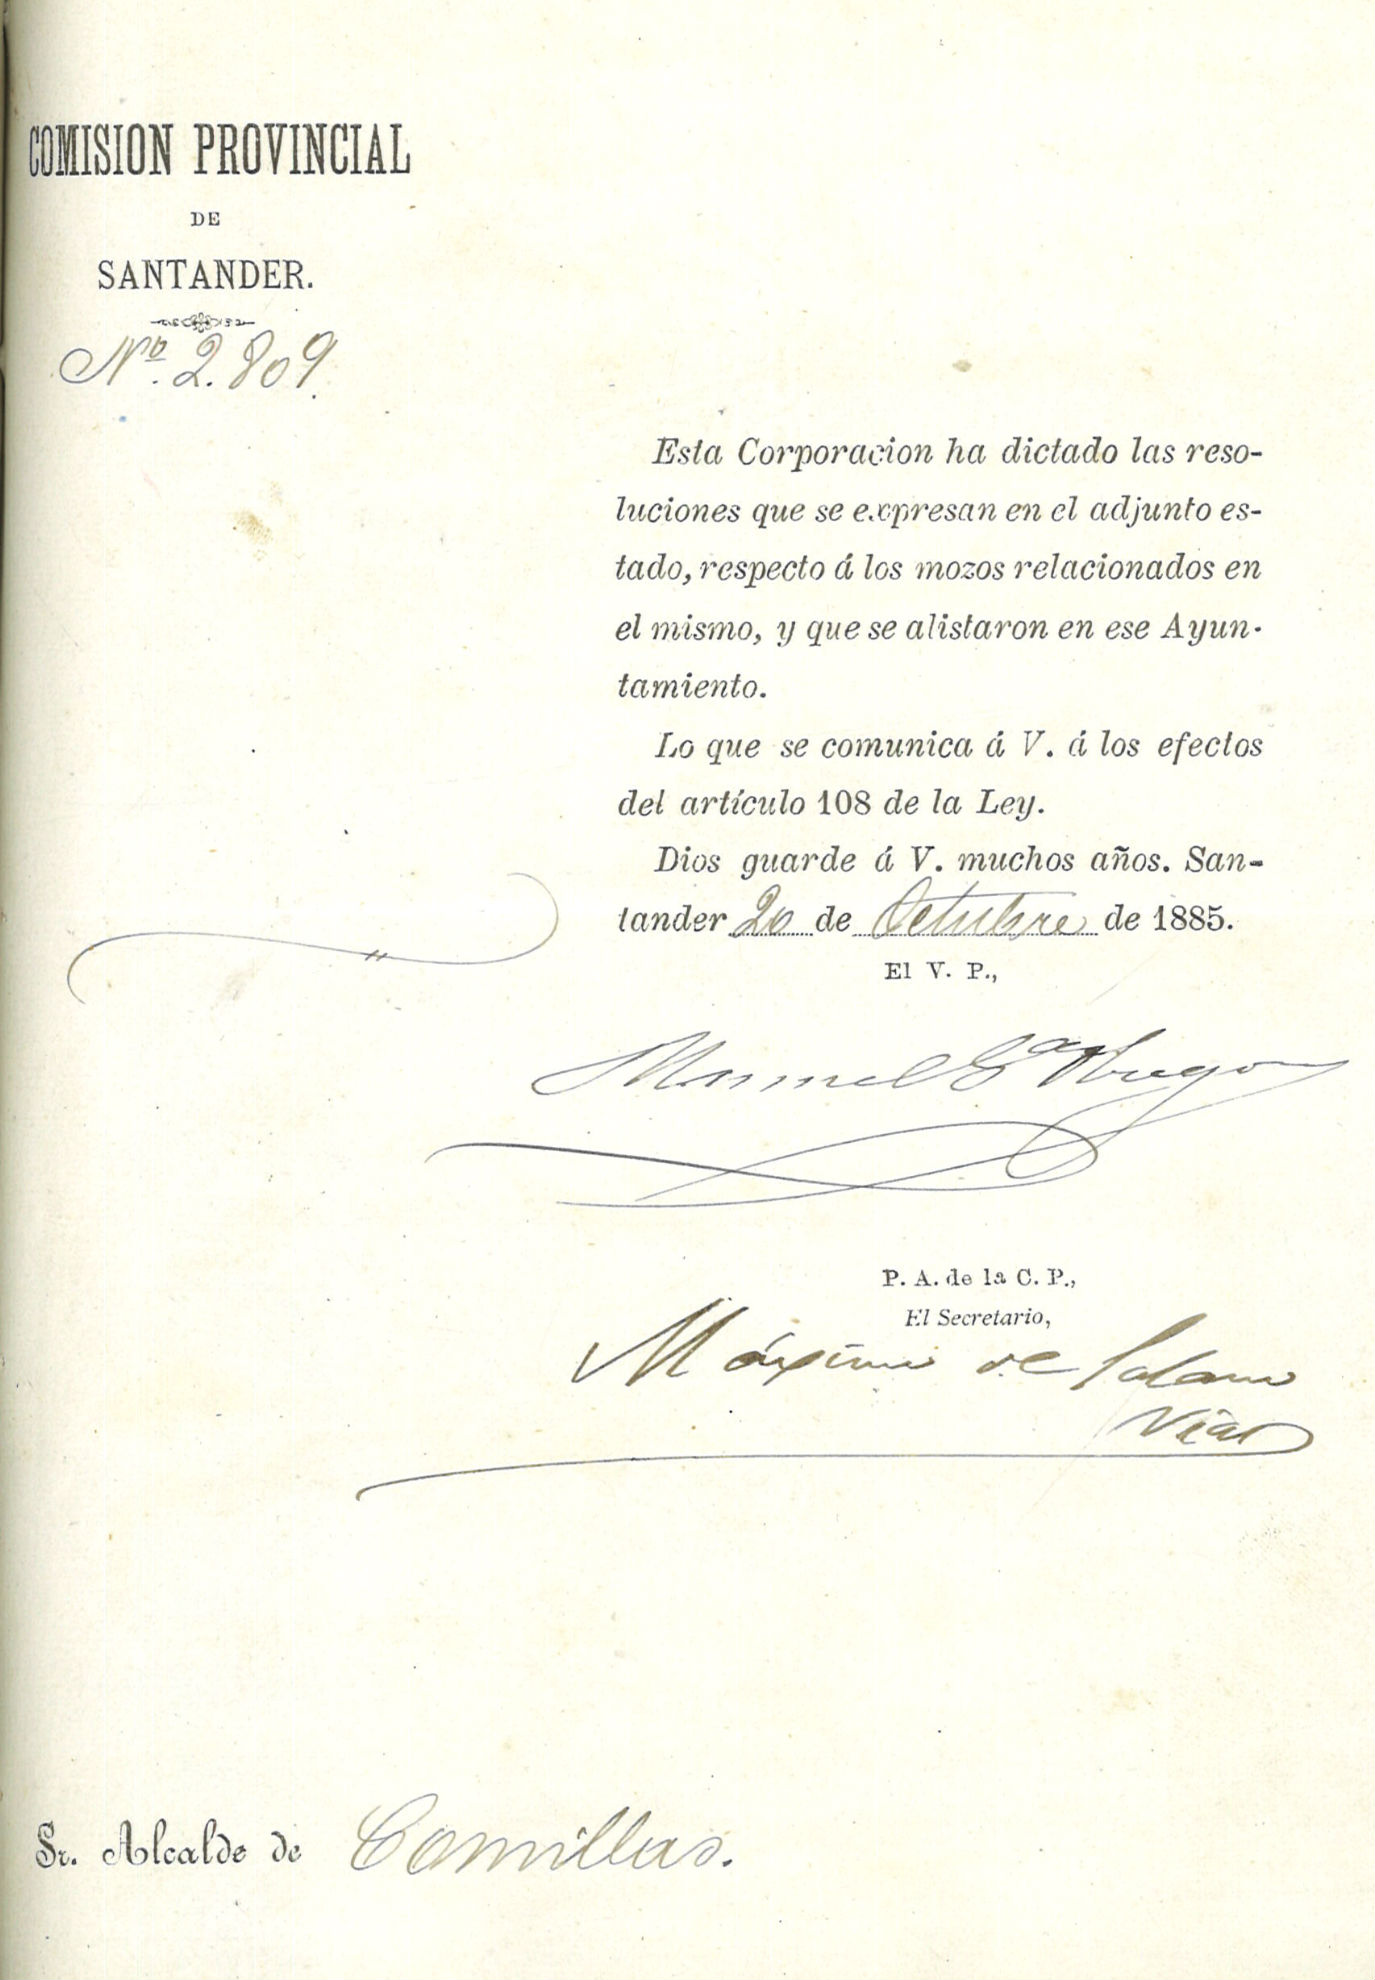 COMISION PROVINCIAL
DE
SANTANDER.
Nº. 2.809.
Esta Corporacion ha dictado las reso-
luciones que se expresan en el adjunto es-
tado, respecto á los mozos relacionados en
el mismo, y que se alistaron en ese Ayun-
tamiento.
Lo que se comunica á V. á los efectos
del artículo 108 de la Ley.
Dios guarde á V. muchos años. San-
tander 20 de Octubre de 1885.
El V. P.,
Manuel Gª Obregon
P. A. de la C. P.,
El Secretario,
Máximo de Solano
Vial
Sr. Alcalde de Comillas.